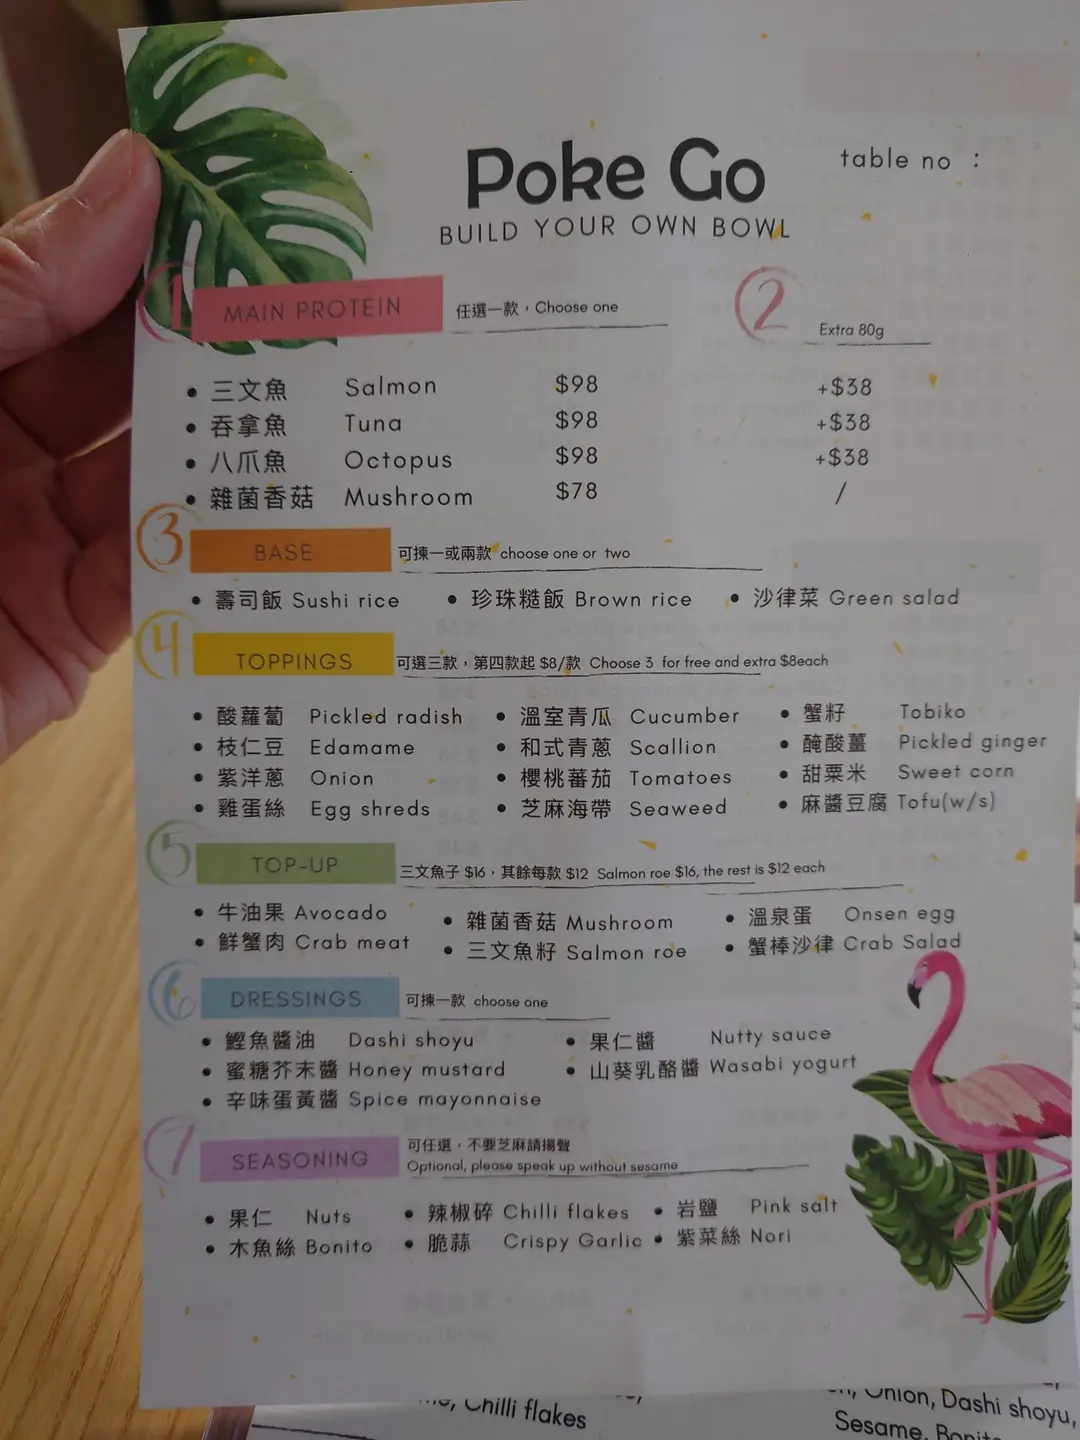 Poke Go
table no :
BUILD YOUR OWN BOWL
1 MAIN PROTEIN 任選一款，Choose one
2 Extra 80g
• 三文魚 Salmon $98 +$38
• 吞拿魚 Tuna $98 +$38
• 八爪魚 Octopus $98 +$38
• 雜菌香菇 Mushroom $78 /
3 BASE 可揀一或兩款 choose one or two
• 壽司飯 Sushi rice • 珍珠糙飯 Brown rice • 沙律菜 Green salad
4 TOPPINGS 可選三款，第四款起 $8/款 Choose 3 for free and extra $8each
• 酸蘿蔔 Pickled radish • 溫室青瓜 Cucumber • 蟹籽 Tobiko
• 枝仁豆 Edamame • 和式青蔥 Scallion • 醃酸薑 Pickled ginger
• 紫洋蔥 Onion • 櫻桃蕃茄 Tomatoes • 甜粟米 Sweet corn
• 雞蛋絲 Egg shreds • 芝麻海帶 Seaweed • 麻醬豆腐 Tofu(w/s)
5 TOP-UP 三文魚子 $16，其餘每款 $12 Salmon roe $16, the rest is $12 each
• 牛油果 Avocado • 雜菌香菇 Mushroom • 溫泉蛋 Onsen egg
• 鮮蟹肉 Crab meat • 三文魚籽 Salmon roe • 蟹棒沙律 Crab Salad
6 DRESSINGS 可揀一款 choose one
• 鰹魚醬油 Dashi shoyu • 果仁醬 Nutty sauce
• 蜜糖芥末醬 Honey mustard • 山葵乳酪醬 Wasabi yogurt
• 辛味蛋黃醬 Spice mayonnaise
7 SEASONING 可任選，不要芝麻請揚聲
Optional, please speak up without sesame
• 果仁 Nuts • 辣椒碎 Chilli flakes • 岩鹽 Pink salt
• 木魚絲 Bonito • 脆蒜 Crispy Garlic • 紫菜絲 Nori
Chilli flakes
Onion, Dashi shoyu,
Sesame,